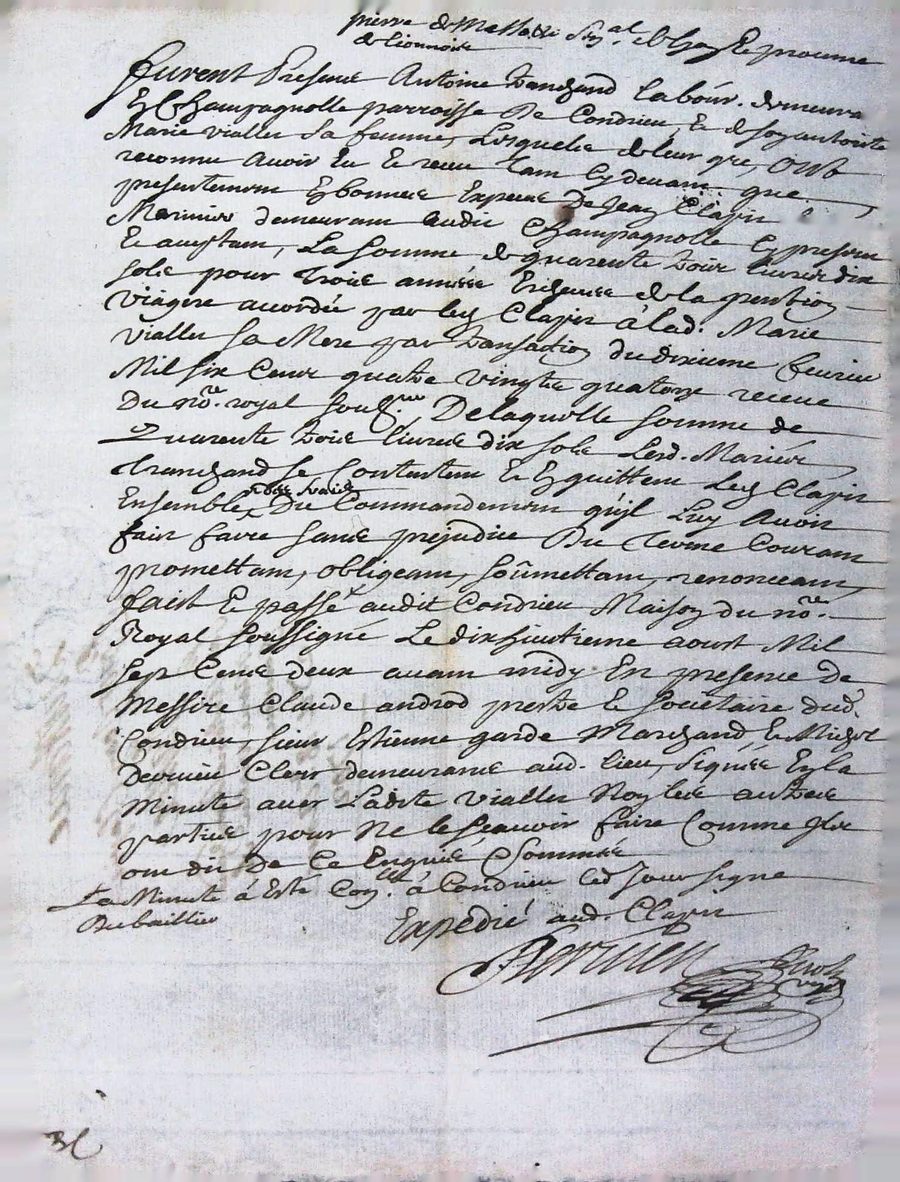 pierre de
de lionnois
furent Presens Antoine tranchand labour. demeurant
Es Champagnolle parroisse De Condrieu, Et de soy authorité
Marie viallet sa femme, Lesquels de leur gre, Ont
reconnu avoir Eu Et receu tant cy devant que
presentement Es bonnes Especes De Jean Clapin
Marinier demeurant audit Champagnolle Cy present
Et acceptant, La somme de quarente trois livres dix
sols pour trois années Escheues de la pention
viagere accordée par led Clapin à lad. Marie
viallet sa Mere par transaction du dixieme fevrier
Mil six Cens quatre vingts quatorze receue
Du nore. royal soussigne De laquelle somme de
Quarente trois livres dix sols Lesd. Mariés
tranchand se contentent Et Es quittent Led Clapin
Ensemble des fraix Du Commandement qu'il Luy avoir
fait faire sans prejudice Du terme Courant
promettant, obligeant, soumettant, renonceant,
fait Et passé audit Condrieu Maison du nore.
Royal soussigné Le dixhuitieme aoust Mil
sept Cens deux avant midy En presence de
Messire Claude androd prestre Et societaire dud.
Condrieu, sieur Estienne garde Marchand, Et Michel
Dervieu Clerc demeurants aud. lieu, signés En la
Minute avec Ladite viallet Non les autres
parties pour Ne le sçavoir faire Comme Ils
ont dit De Ce Enquis Et sommés
La Minute à Esté Conlee. à Condrieu led Jour signe
Dubaillier
Expédié aud. Clapin
Dervieu